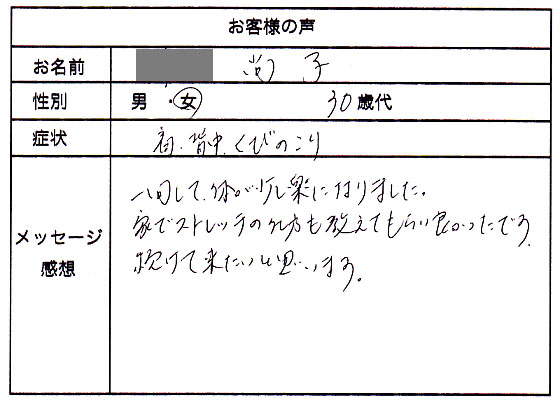 お客様の声
お名前 尚子
性別 男・女 30歳代
症状 肩、背中、くびのこり
メッセージ
感想
一回して、体が少し楽になりました。
家でストレッチの仕方も教えてもらい良かったです。
続けて来たいと思います。